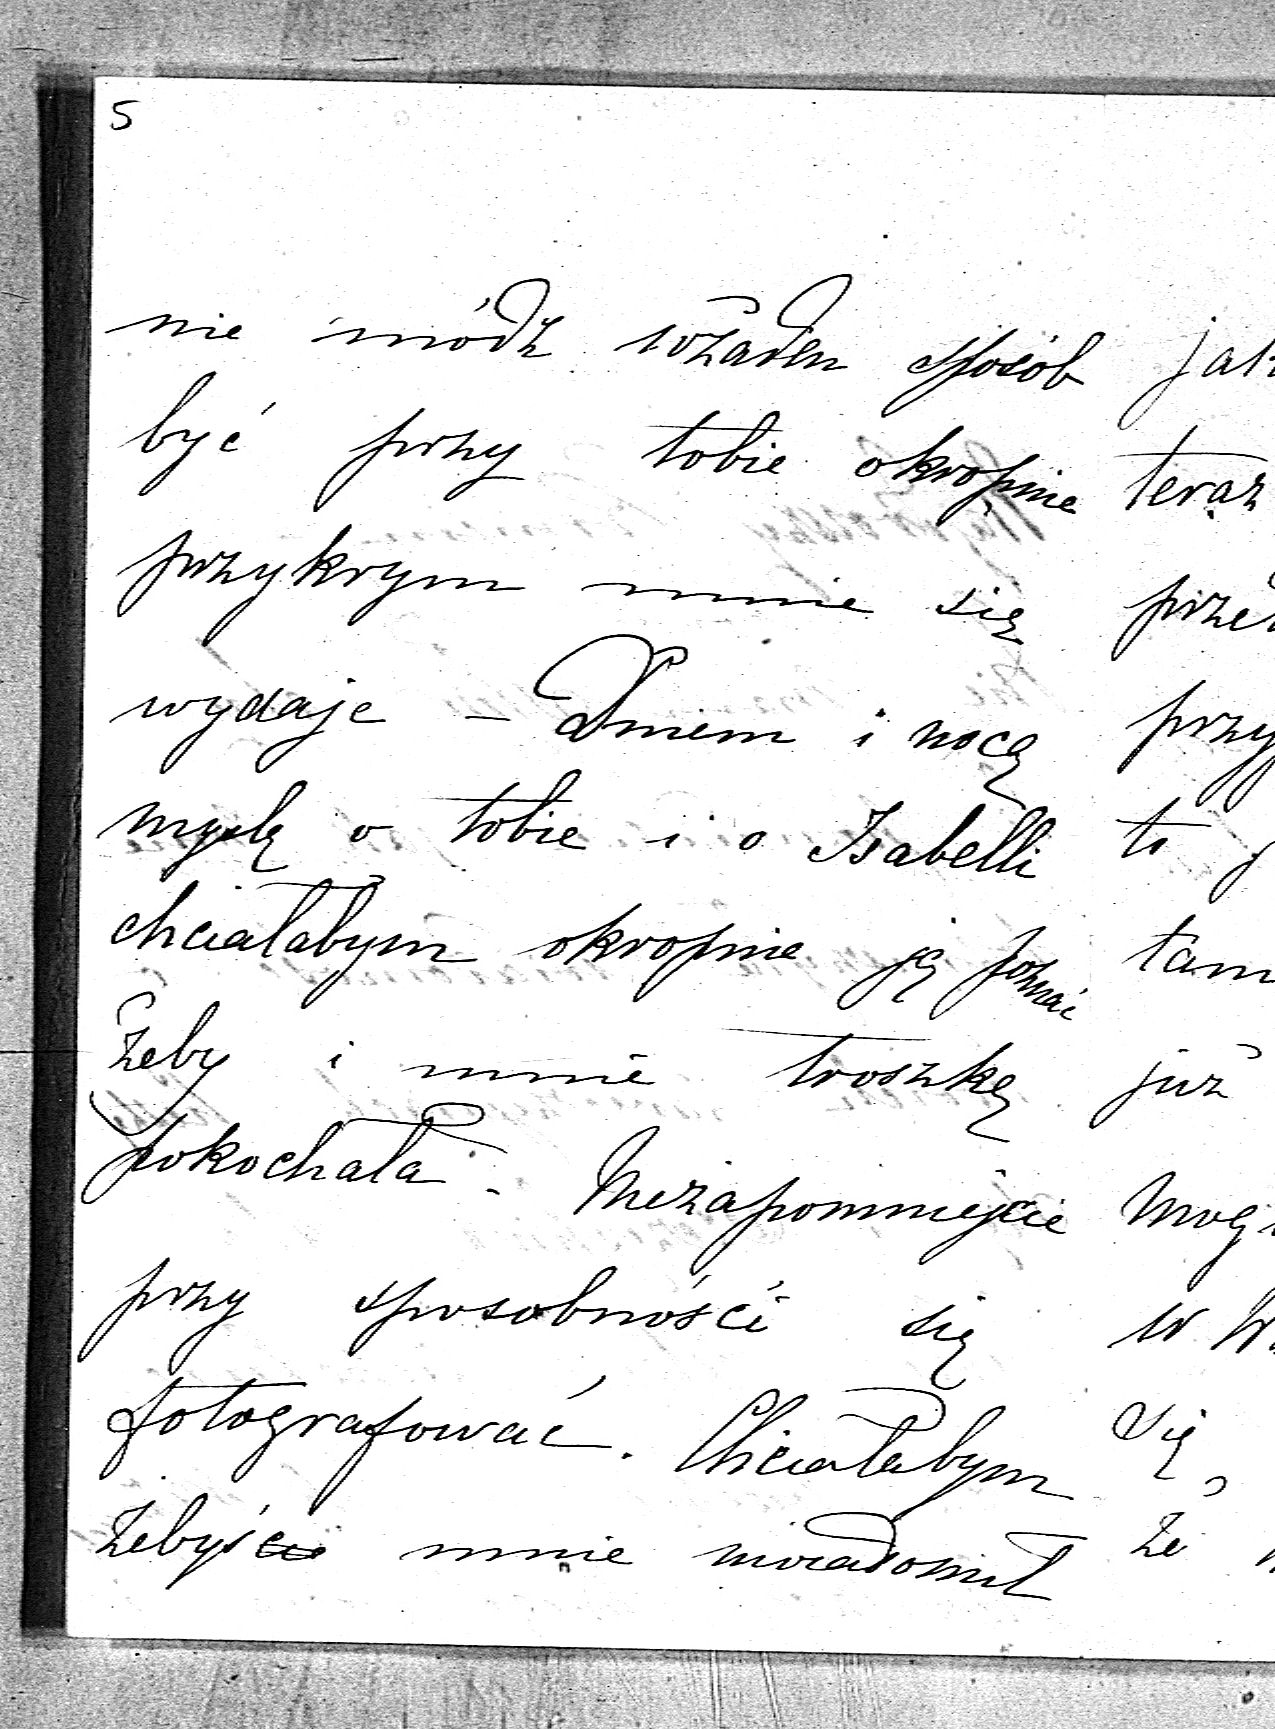 5
nie módz wżaden sposób
być przy tobie okropnie
przykrym mnie się
wydaje – Dniem i nocą
myślę o tobie i o Isabelli
chciałabym okropnie ją poznać
żeby i mnie troszkę
pokochała. Niezapomniejcie
przy sposobnośći się
fotografować. Chciałabym
żebyś mnie uwiadomił
teraz
to
tam
już
w
się,
że